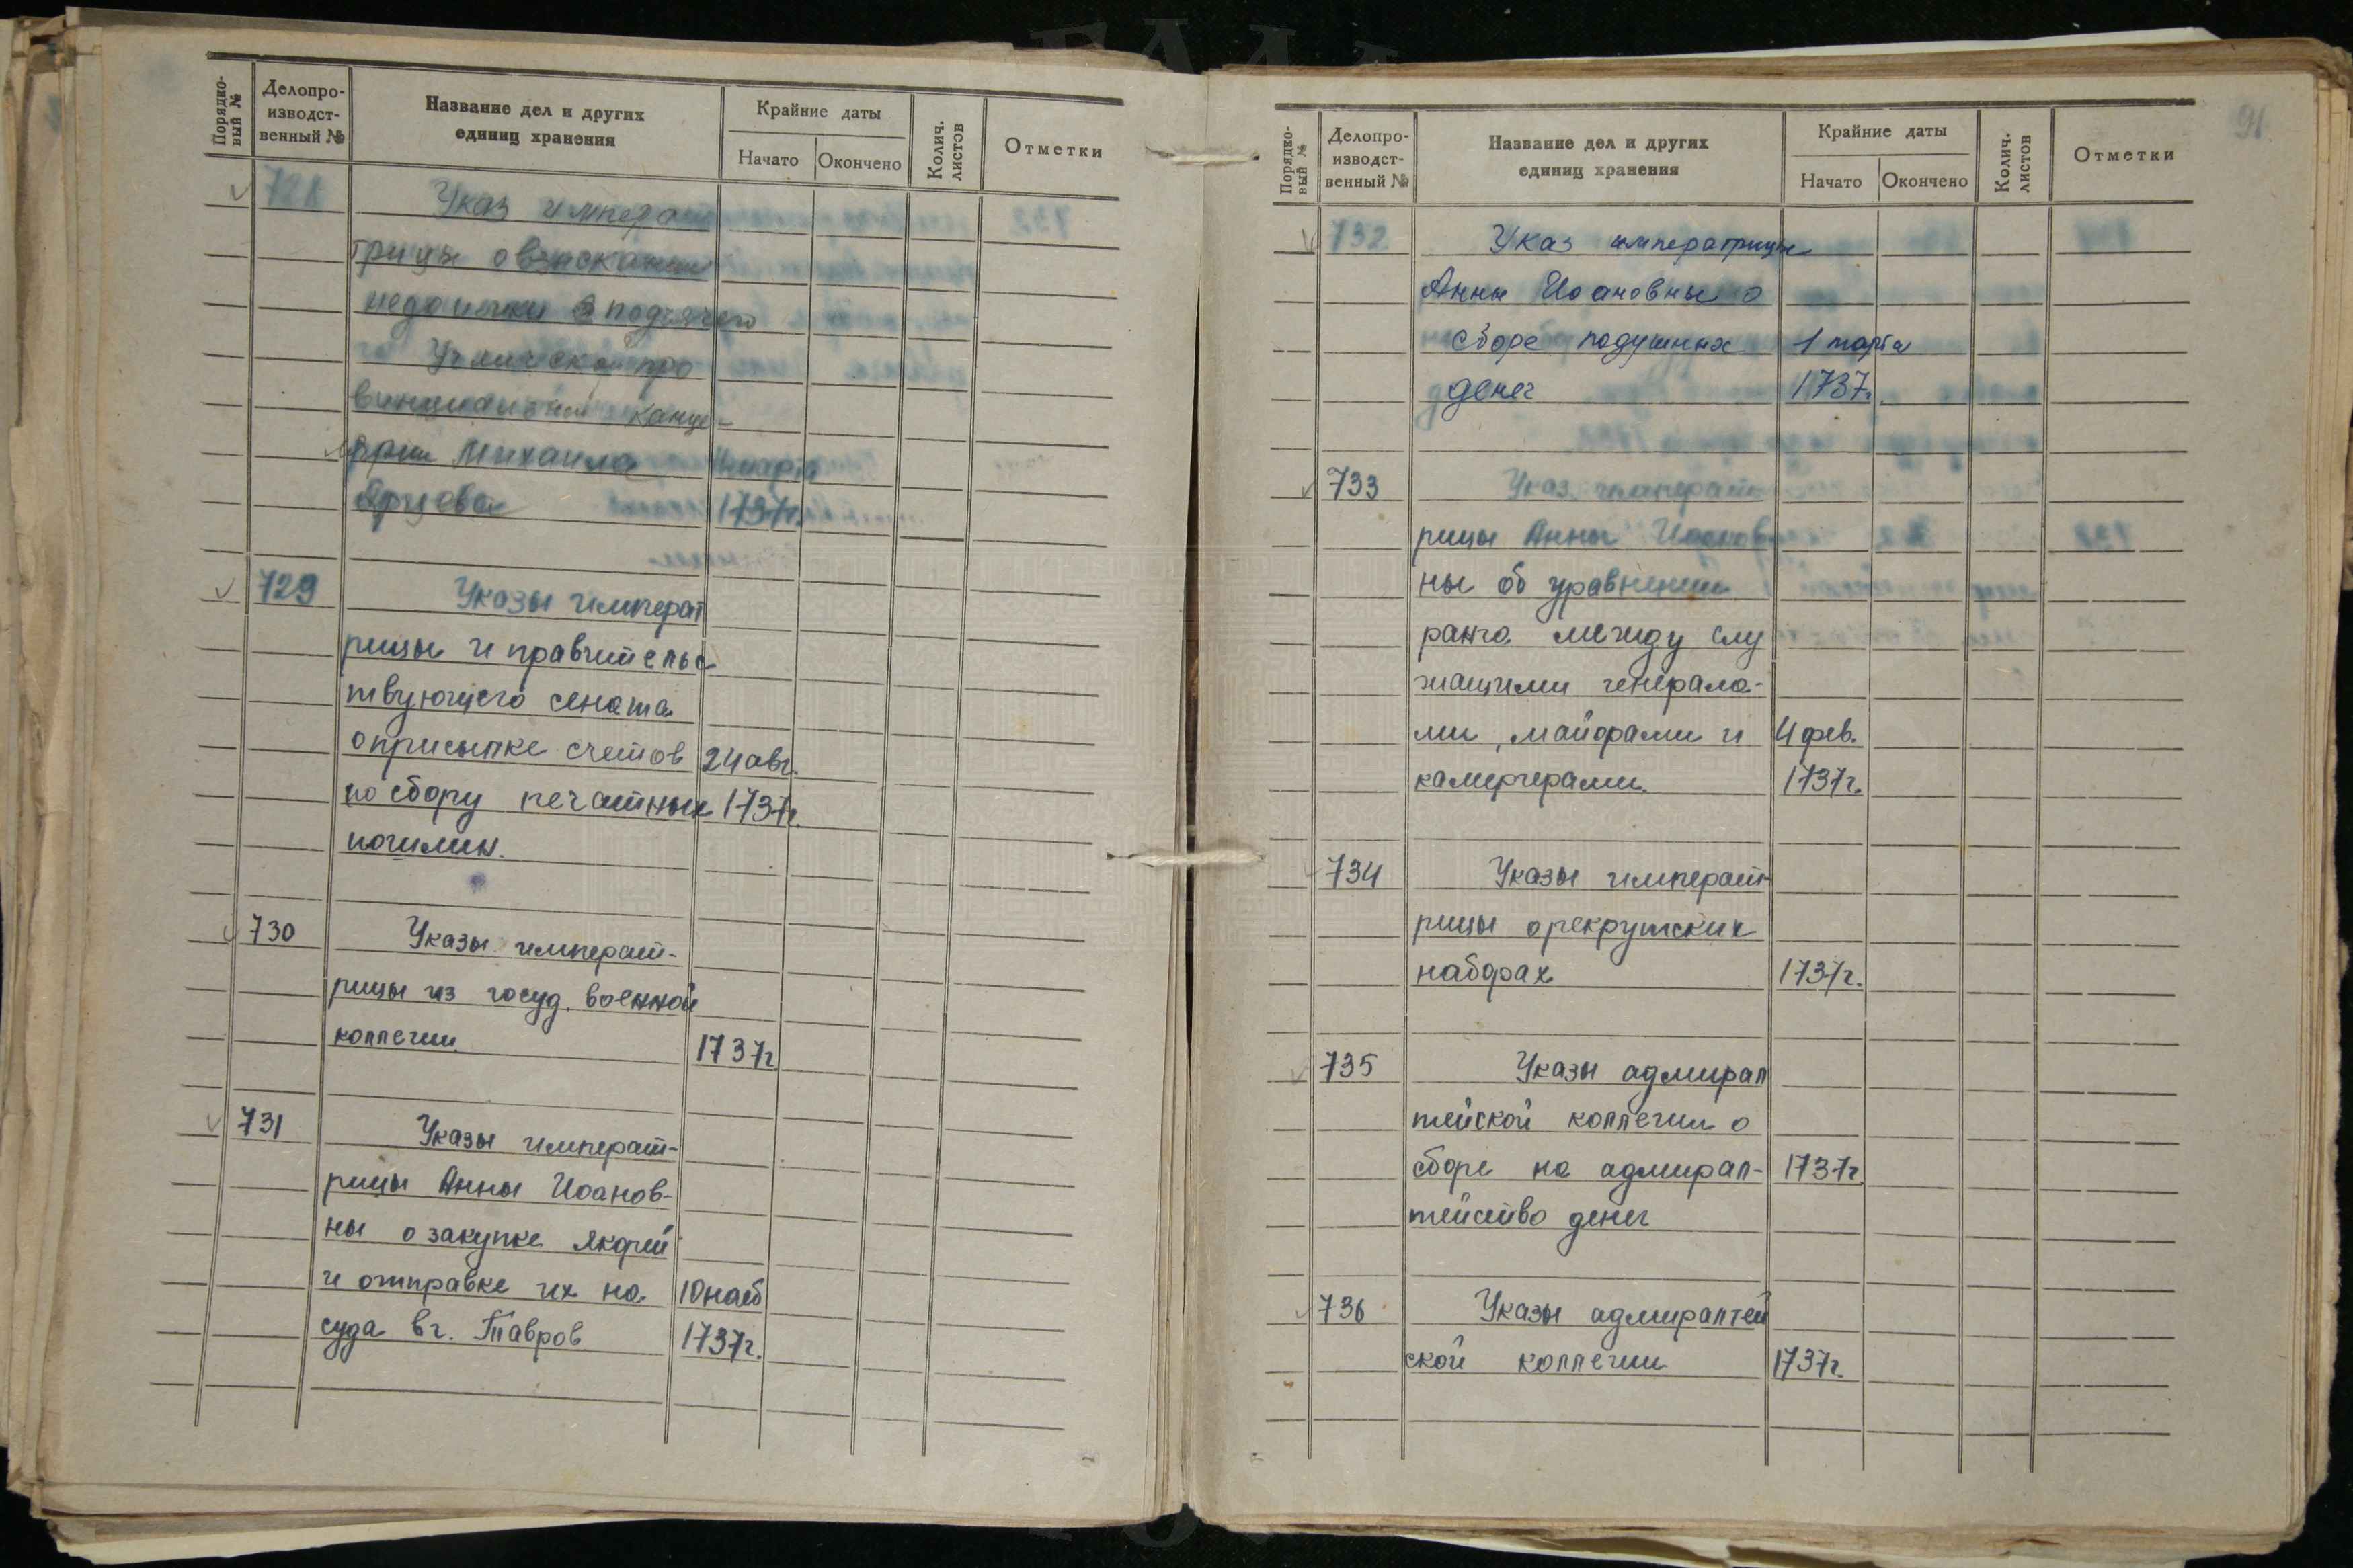 Порядко-
вый №
Делопро-
изводст-
венный №
Название дел и других
единиц хранения
Крайние даты
Начато
Окончено
Колич.
листов
Отметки
728 Указ императ
трицы о взыскании
недоимки с подъячего
Угличской про
винциальной канце-
лярии Михаила марта
Арцева 1737г.
729 Указы императ
рицы и правительс
твующего сената
о присылке счетов 24 авг.
по сбору печатных 1737г.
пошлин.
730 Указы императ-
рицы из госуд. военной
коллегии 1737г
731 Указы императ-
рицы Анны Иоанов-
ны о закупке якорей
и отправке их на 10 нояб
суда в г. Тавров 1737г.
91
Порядко-
вый №
Делопро-
изводст-
венный №
Название дел и других
единиц хранения
Крайние даты
Начато
Окончено
Колич.
листов
Отметки
732 Указ императрицы
Анны Иоановны о
сборе подушных 1 марта
денег 1737г.
733 Указ императ-
рицы Анны Иоанов
ны об уравнении
ранга между слу
жащими генерала-
ми, майорами и 4 фев.
камергерами. 1737г.
734 Указы императ-
рицы о рекрутских
наборах 1737г.
735 Указы адмирал
тейской коллегии о
сборе на адмирал- 1737г.
тейство денег
736 Указы адмиралтей
ской коллегии 1737г.